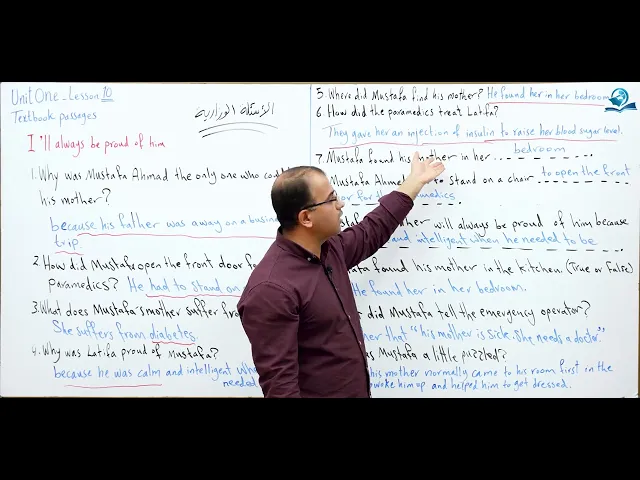 Unit One - Lesson 10
Textbook passages
الاسئلة الوزارية
I'll always be proud of him
1. Why was Mustafa Ahmad the only one who could
his mother?
because his father was away on a business
trip.
2. How did Mustafa open the front door for
Paramedics? He had to stand on
3. What does Mustafa's mother suffer from
She suffers from diabetes.
4. Why was Latifa proud of Mustafa?
because he was calm and intelligent when
needed
5. Where did Mustafa find his mother? He found her in her bedroom
6 How did the paramedics treat Latifa?
They gave her an injection of insulin to raise her blood sugar level.
7. Mustafa found his mother in her bedroom
Mustafa Ahmed to stand on a chair to open the front
for the paramedics.
will always be proud of him because
and intelligent when he needed to be
found his mother in the kitchen. (True or False)
He found her in her bedroom.
did Mustafa tell the emergency operator?
her that "his mother is sick. She needs a doctor."
was Mustafa a little puzzled?
his mother normally came to his room first in the
woke him up and helped him to get dressed.